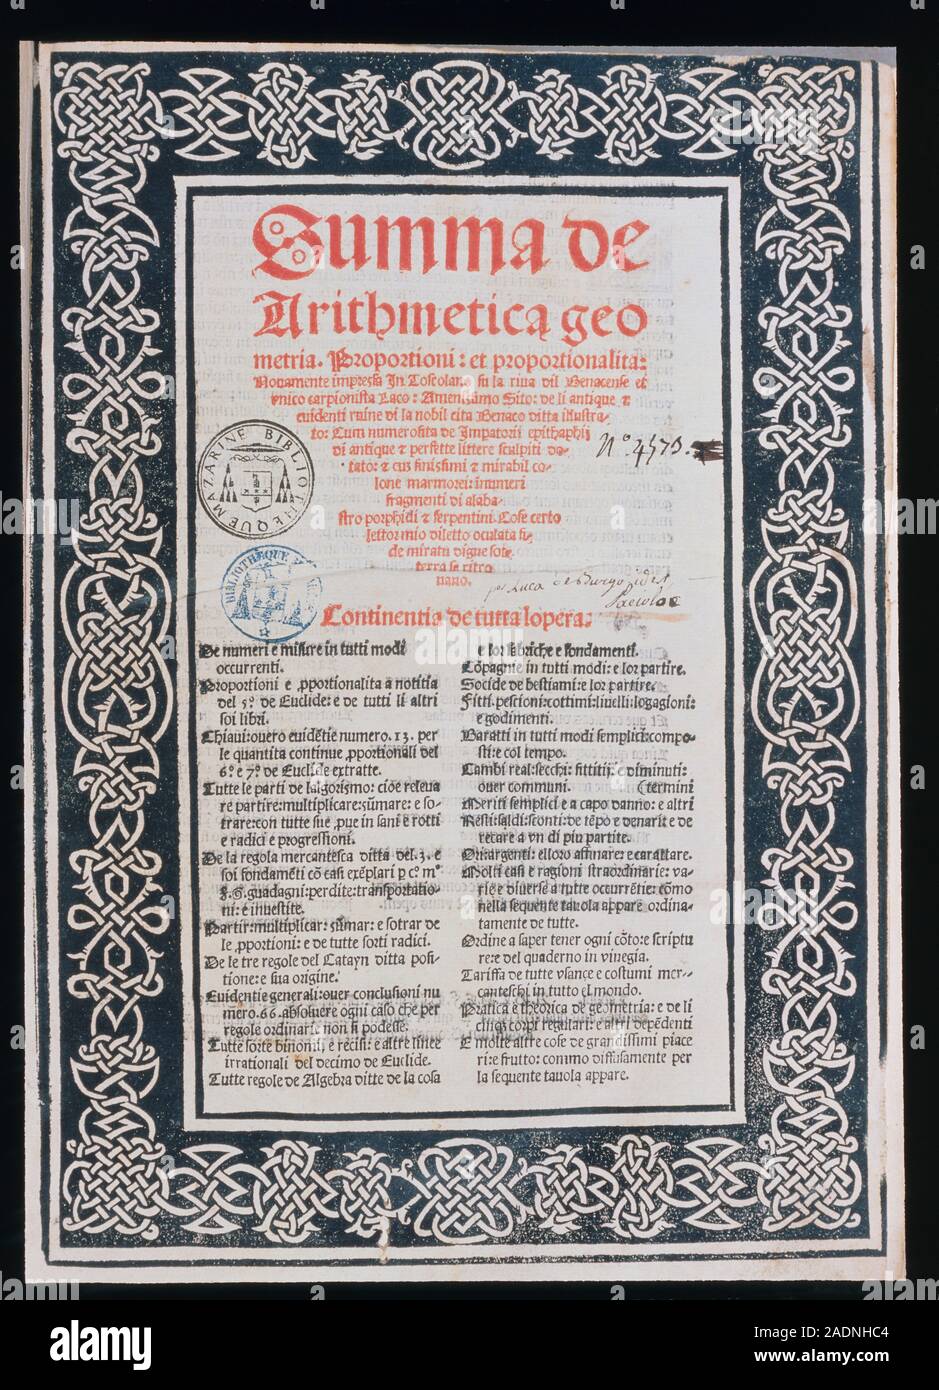 Summa de
Arithmetica geo
metria. Proportioni: et proportionalita:
Novamente impressa In Toscolano su la riva dil Benacense et
unico carpionista Laco: Amenissimo Sito: de li antique &
evidenti ruine di la nobil cita Benaco ditta illustra-
to: Cum numerosita de Impatorii epithaphij
di antique & perfette littere sculpiti do-
tato: & cum finissimi & mirabil co-
lone marmorei: inumeri
fragmenti di alaba-
stro porphidi & serpentini. Cose certo
lettor mio diletto oculata fi-
de miratu digne sot-
terra se ritro
vano.
Nº 4573.
MAZARINE BIBLIOTHEQUE
BIBLIOTHEQUE
Luca de Burgo
Continentia de tutta lopera.
De numeri e misure in tutti modi
occurrenti.
Proportioni e ꝓportionalita a notitia
del 5º de Euclide: e de tutti li altri
soi libri.
Chiavi: overo evidētie numero. 13. per
le quantita continue ꝓportionali del
6º e 7º de Euclide extratte.
Tutte le parti de lalgorismo: cioe releva
re partire: multiplicare: sūmare: e so-
trare: con tutte sue ꝓve in sani e rotti
e radici e progressioni.
De la regola mercantesca ditta del. 3. e
soi fondamēti cō casi exēplari p cº mº
guadagni: perdite: transportatio-
ni: e investite.
Partir: multiplicar: sūmar: e sotrar de
le ꝓportioni: e de tutte sorti radici.
De le tre regole del Catayn ditta posi-
tione: e sua origine.
Evidentie generali: over conclusioni nu
mero. 66. absolvere ogni caso che per
regole ordinarie non si podesse.
Tutte sorte binomii e recisi: e altre linee
irrationali del decimo de Euclide.
Tutte regole de Algebra ditte de la cosa
e lor fabriche e fondamenti.
Cōpagnie in tutti modi: e lor partire.
Socide de bestiami: e lor partire.
Fitti: pescioni: cottimi: livelli: logagioni:
e godimenti.
Baratti in tutti modi semplici: compo-
sti: e col tempo.
Cambi reali: secchi: fittitii: e diminuti:
over communi. (termini
Meriti semplici e a capo danno: e altri
Resti: saldi: sconti: de tēpo e denari: e de
recare a un di piu partite.
Ori: argenti: e lloro affinare: e carattare.
Molti casi e ragioni straordinarie: va-
rie e diverse a tutte occurrētie: cōmo
nella sequente tavola appare ordina-
tamente de tutte.
Ordine a saper tener ogni cōto: e scriptu
re: e del quaderno in vinegia.
Tariffa de tutte usance e costumi mer-
canteschi in tutto el mondo.
Pratica e theorica de geometria: e de li
5 corpi regulari: e altri depēdenti
E molte altre cose de grandissimi piace
ri: e frutto: commo diffusamente per
la sequente tavola appare.
alamy
Image ID: 2ADNHC4
www.alamy.com